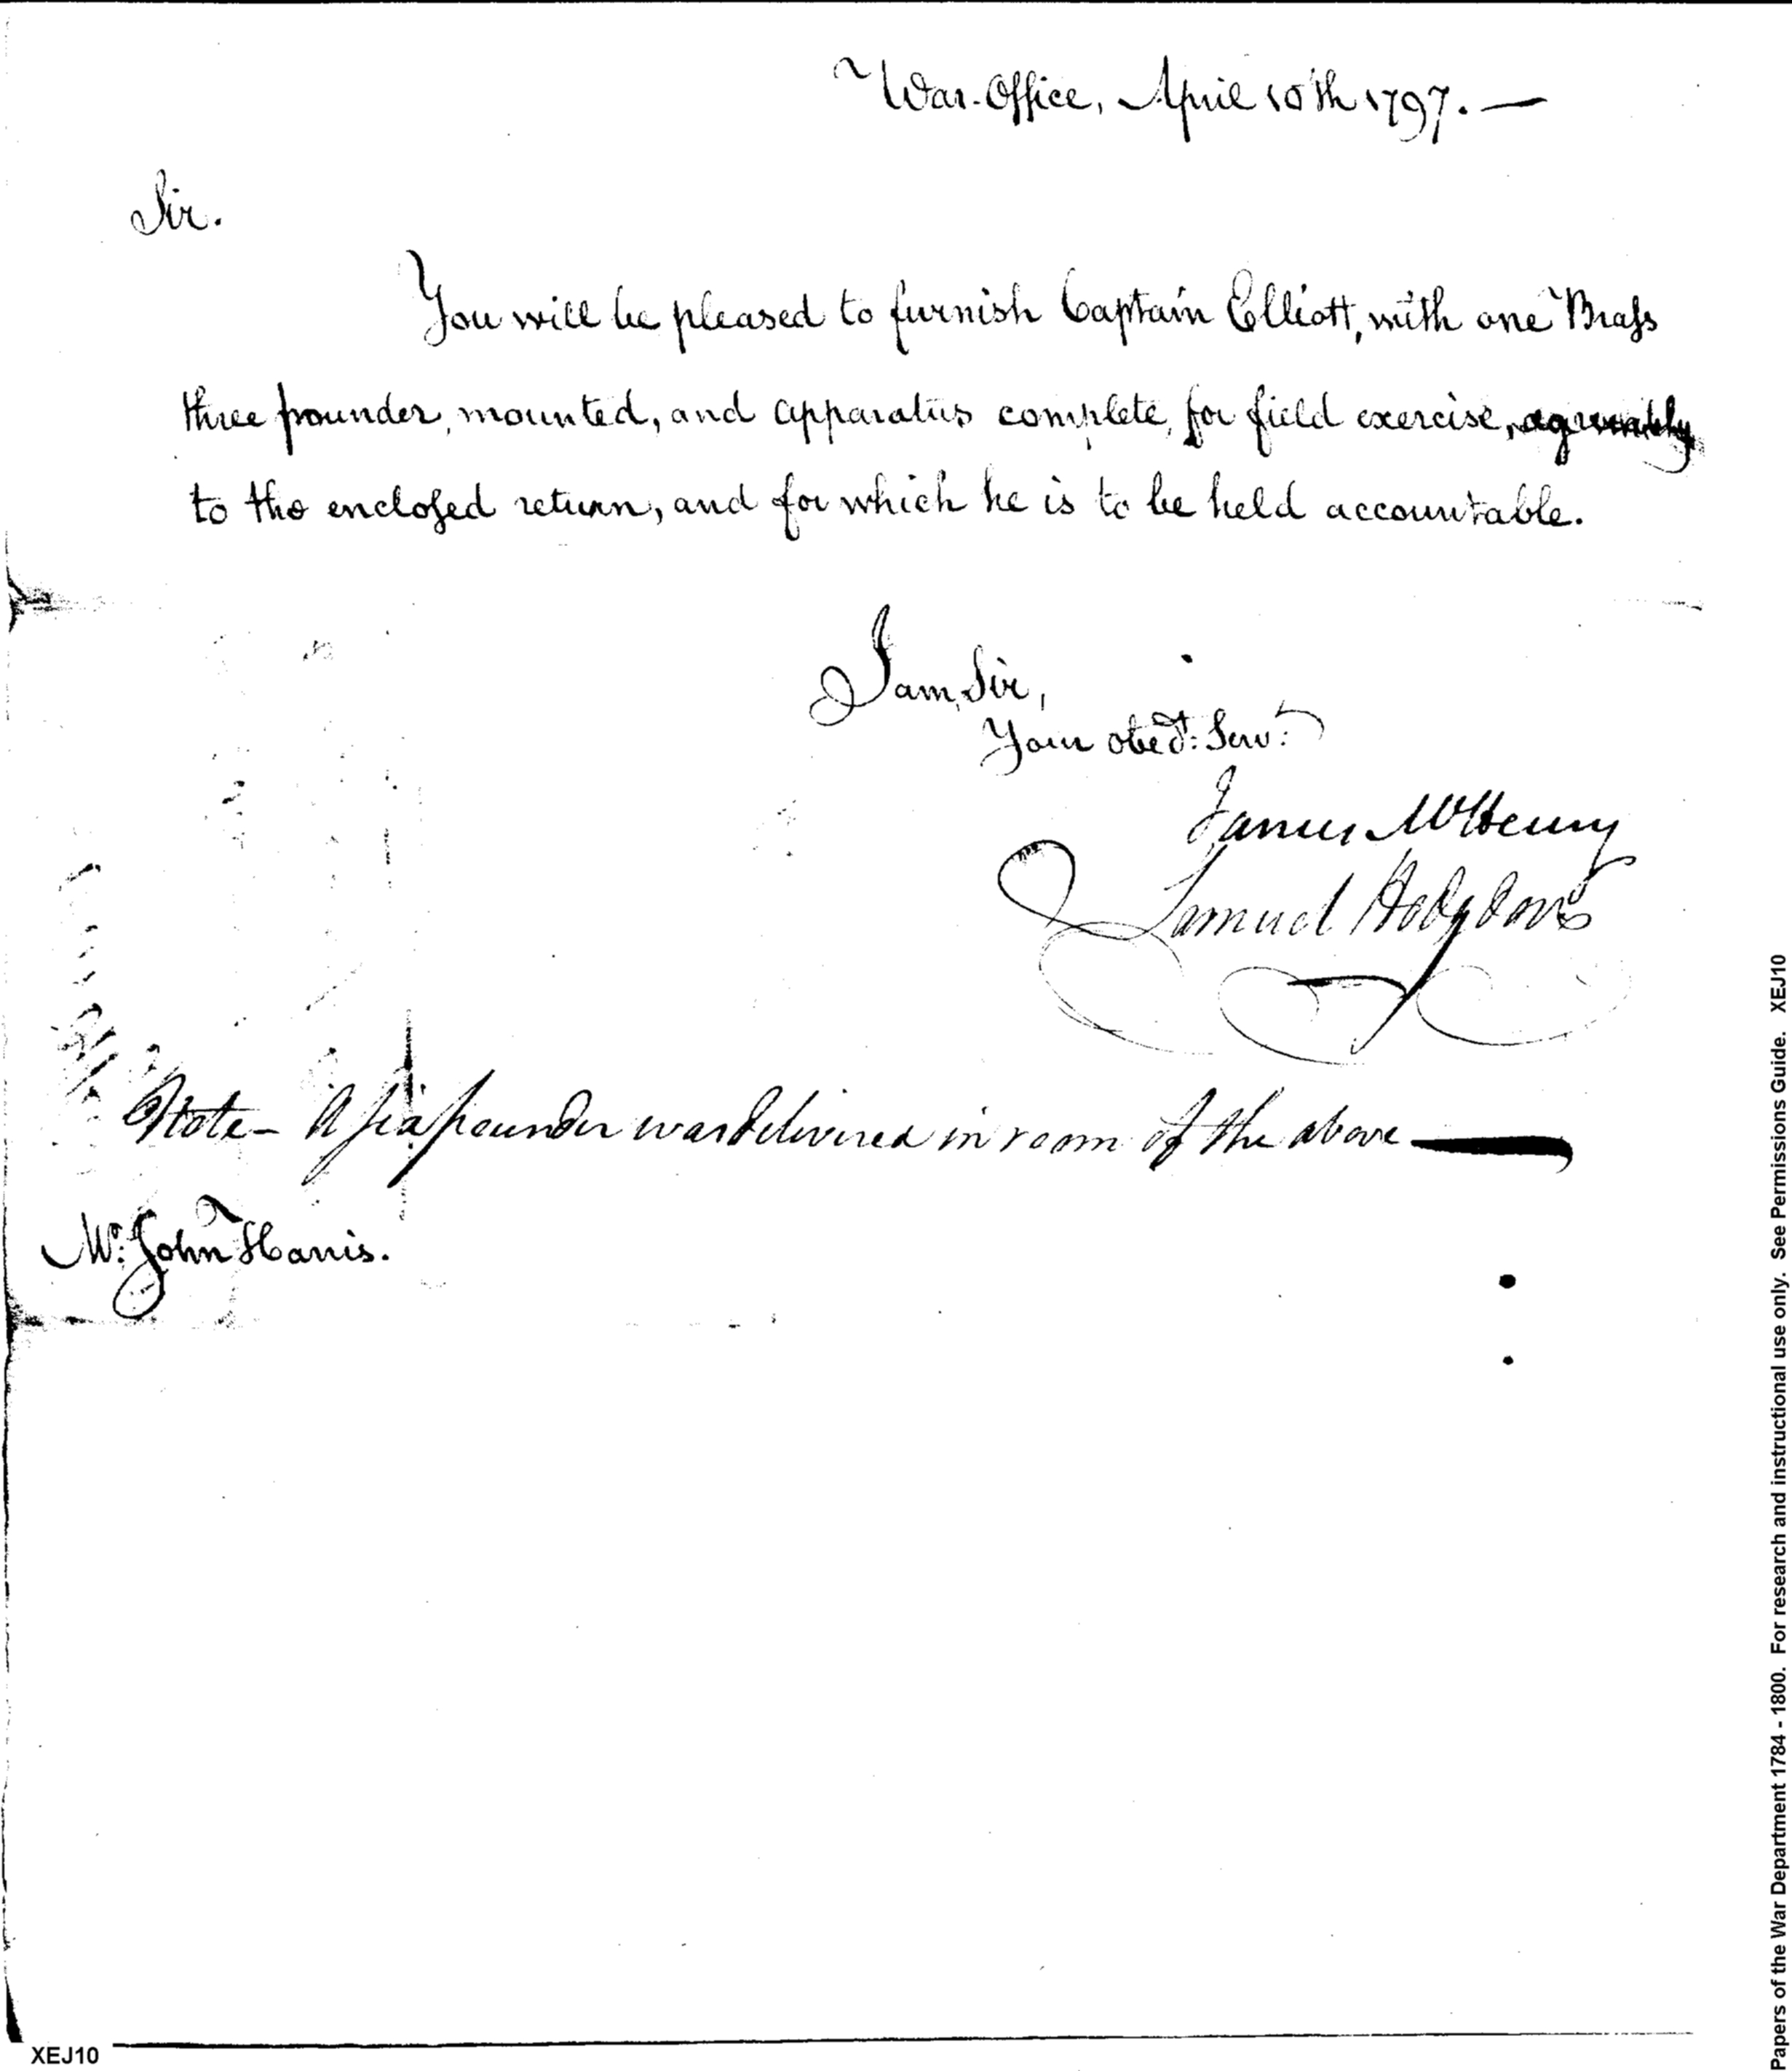 War-Office, April 10th 1797. —
Sir.
You will be pleased to furnish Captain Elliott, with one Brass
three pounder, mounted, and apparatus complete, for field exercise, agreeably
to the enclosed return, and for which he is to be held accountable.
I am, Sir,
Your obedt: Servt:
James McHenry
Samuel Hodgdon
Note - A six pounder was delivered in room of the above —
Mr: John Harris.
XEJ10
Papers of the War Department 1784 - 1800. For research and instructional use only. See Permissions Guide. XEJ10